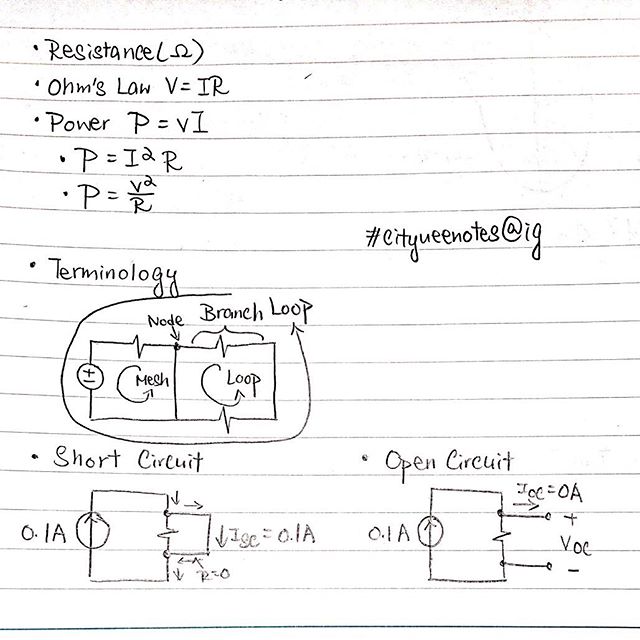 • Resistance(Ω)
• Ohm's Law V = IR
• Power P = VI
• P = I² R
• P = V²/R
#cityueenotes@ig
• Terminology
Node Branch Loop
±
Mesh Loop
• Short Circuit
0.1A
Isc = 0.1A
R=0
• Open Circuit
Ioc = 0A
0.1A
+
Voc
−